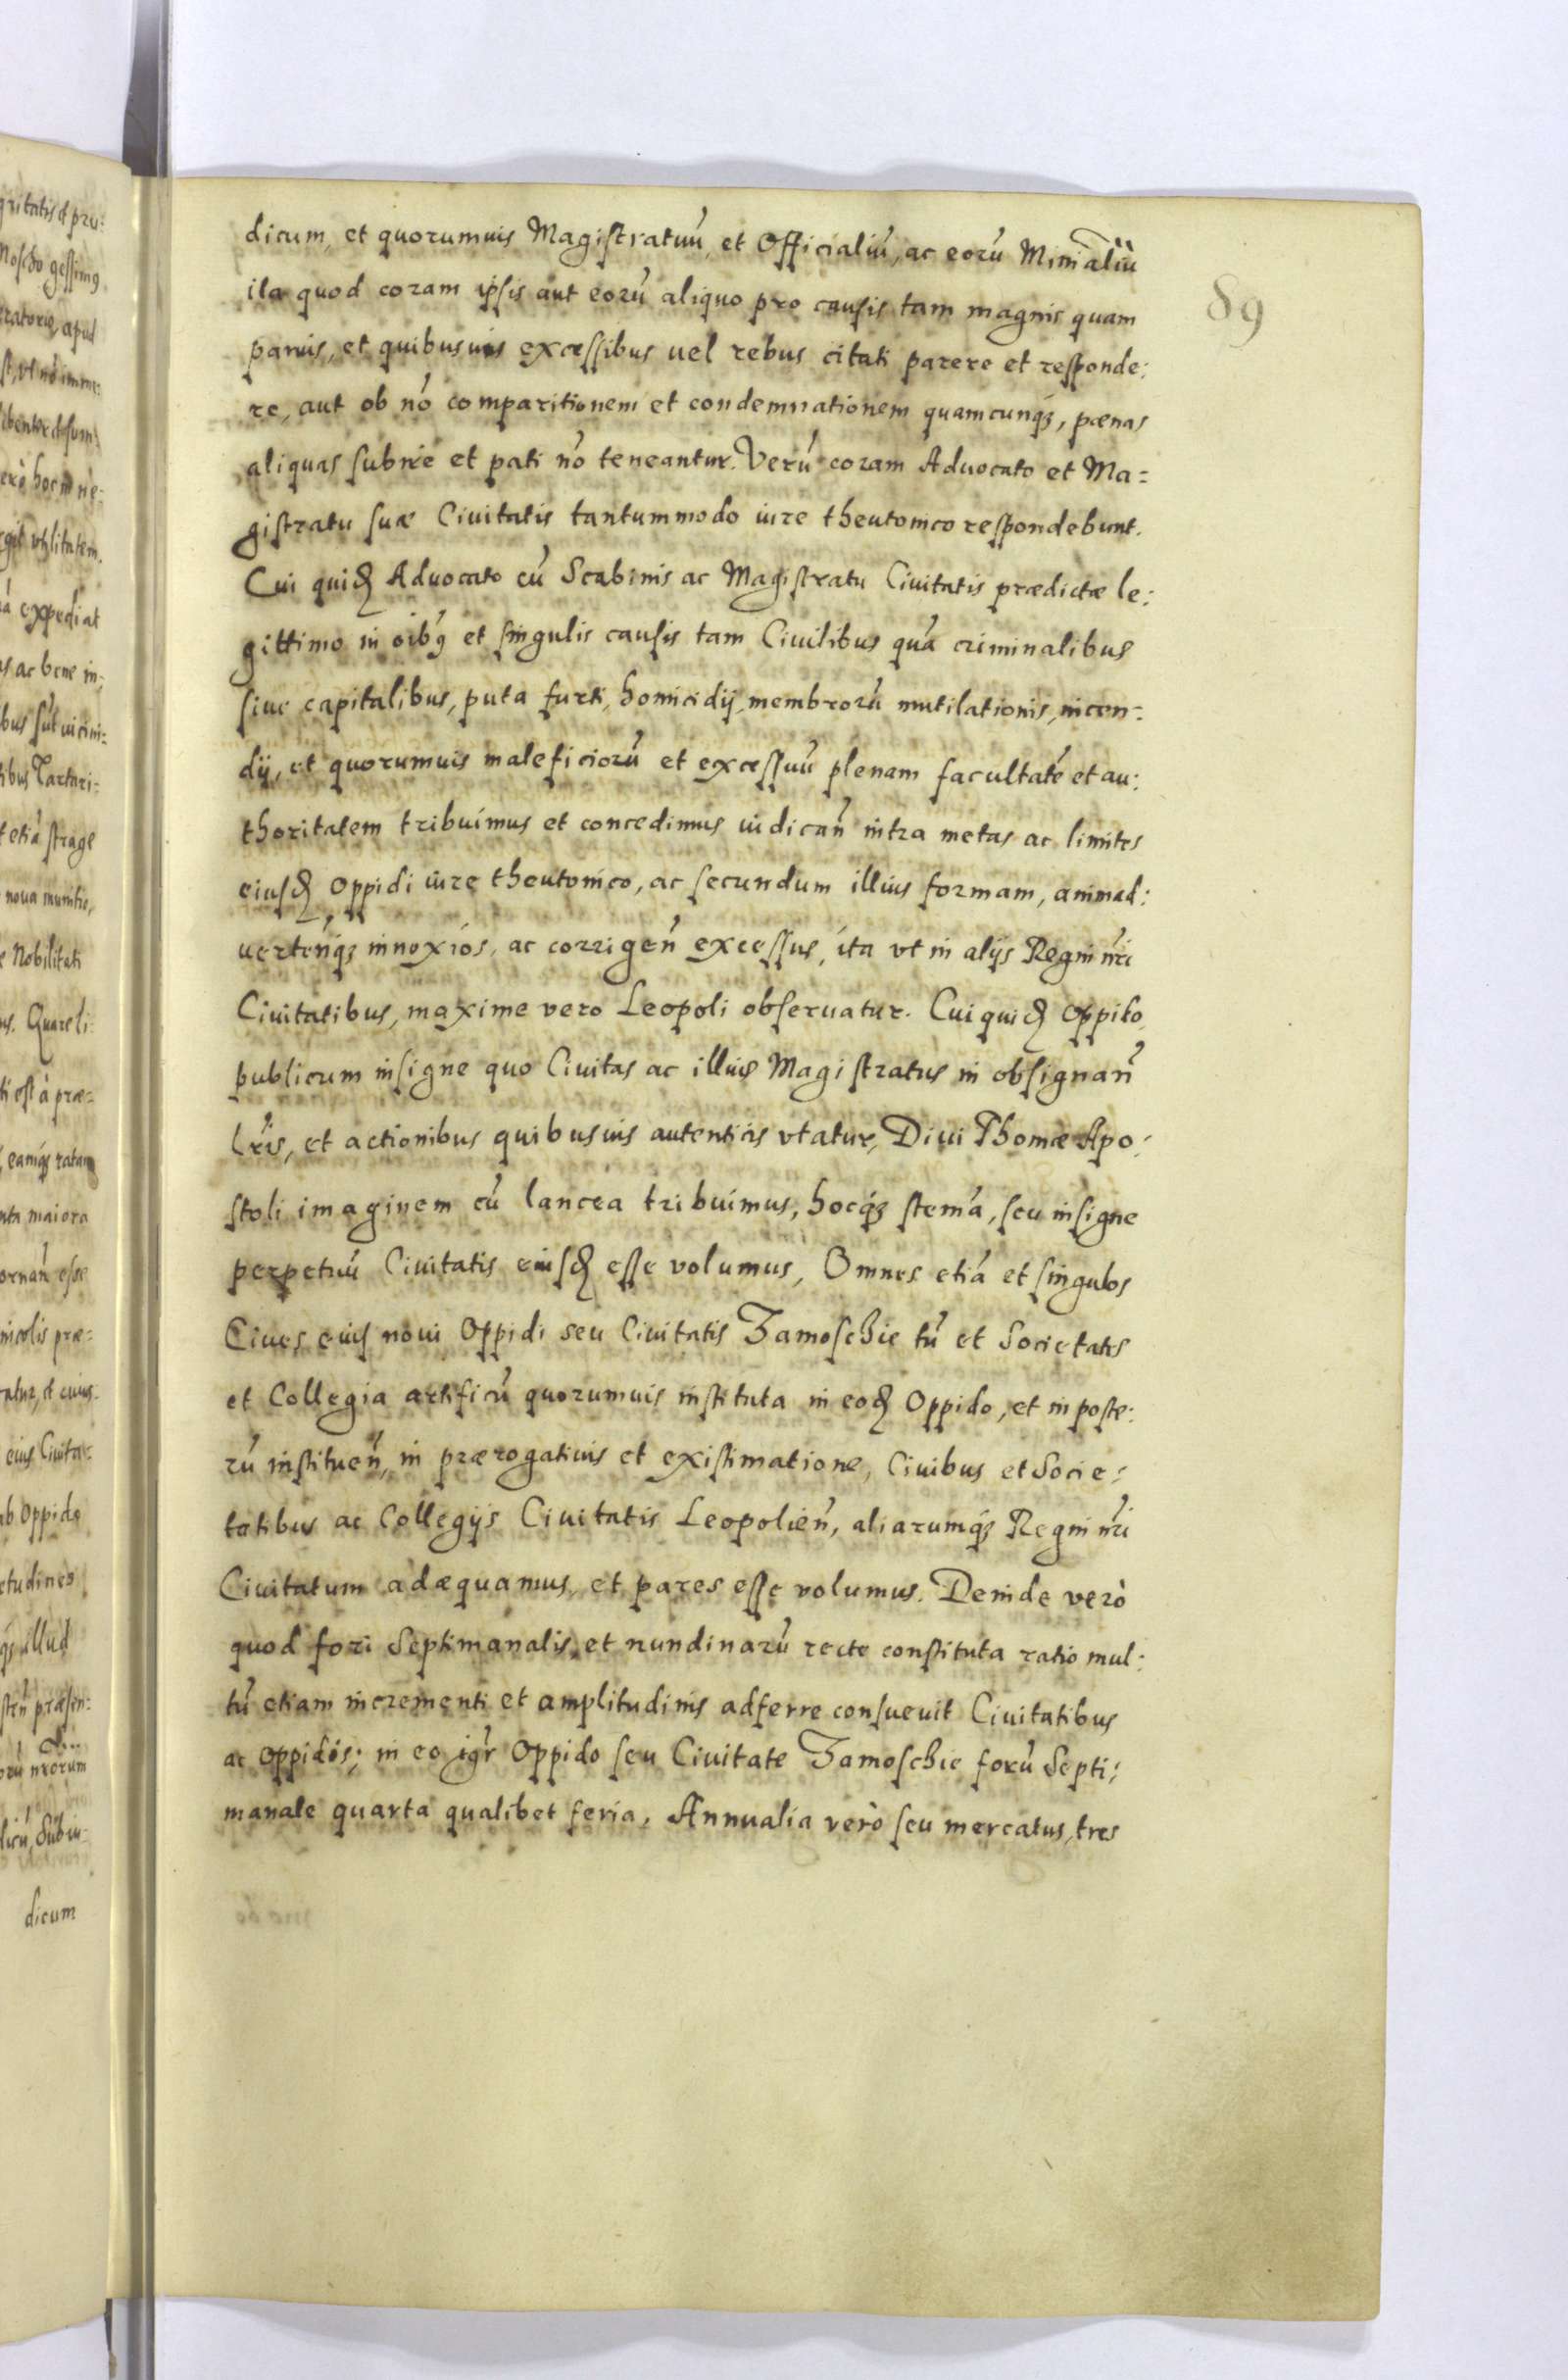 dicum, et quorumuis Magistratuũ, et Officialiũ, ac eorũ Minĩaliũ
ita quod coram ipsis aut eorũ aliquo pro causis tam magnis quam
paruis, et quibusuis excessibus uel rebus citati parere et responde:
re, aut ob nõ comparitionem et condemnationem quamcunqꝫ, pœnas
aliquas subire et pati nõ teneantur. Verũ coram Aduocato et Ma=
gistratu suæ Ciuitatis tantummodo iure theutonico respondebunt.
Cui quidẽ Aduocato cũ Scabinis ac Magistratu Ciuitatis prædictæ le:
gittimo in oĩbꝰ et singulis causis tam Ciuilibus quã criminalibus
siue capitalibus, puta furti, homicidij, membrorũ mutilationis, incen=
dij, et quorumuis maleficiorũ et excessuũ plenam facultatẽ et au:
thoritatem tribuimus et concedimus iudicañ intra metas ac limites
eiusdẽ Oppidi iure theutonico, ac secundum illius formam, animad:
uerteñqꝫ innoxios, ac corrigeñ excessus, ita vt in alijs Regni nr̃i
Ciuitatibus, maxime vero Leopoli obseruatur. Cui quidẽ Oppido
publicum insigne quo Ciuitas ac illius Magistratus in obsignañ
lr̃is, et actionibus quibusuis autenticis vtatur, Diui Thomæ Apo:
stoli imaginem cũ lancea tribuimus, hocqꝫ stem̃a, seu insigne
perpetuũ Ciuitatis eiusdẽ esse volumus, Omnes etiã et singulos
Ciues eius noui Oppidi seu Ciuitatis Zamoschie tũ et Societates
et Collegia artificũ quorumuis instituta in eodẽ Oppido, et in poste:
rũ instituen̄, in prærogatiuis et existimatione, Ciuibus et Socie:
tatibus ac Collegijs Ciuitatis Leopolieñ, aliarumqꝫ Regni nr̃i
Ciuitatum adæquamus, et pares esse volumus. Deinde verò
quod fori Septimanalis, et nundinarũ recte constituta ratio mul:
tũ etiam incrementi et amplitudinis adferre consueuit Ciuitatibus
ac Oppidis; in eo igr̃ Oppido seu Ciuitate Zamoschie forũ Septi:
manale quarta qualibet feria, Annualia verò seu mercatus, tres
89
dicum